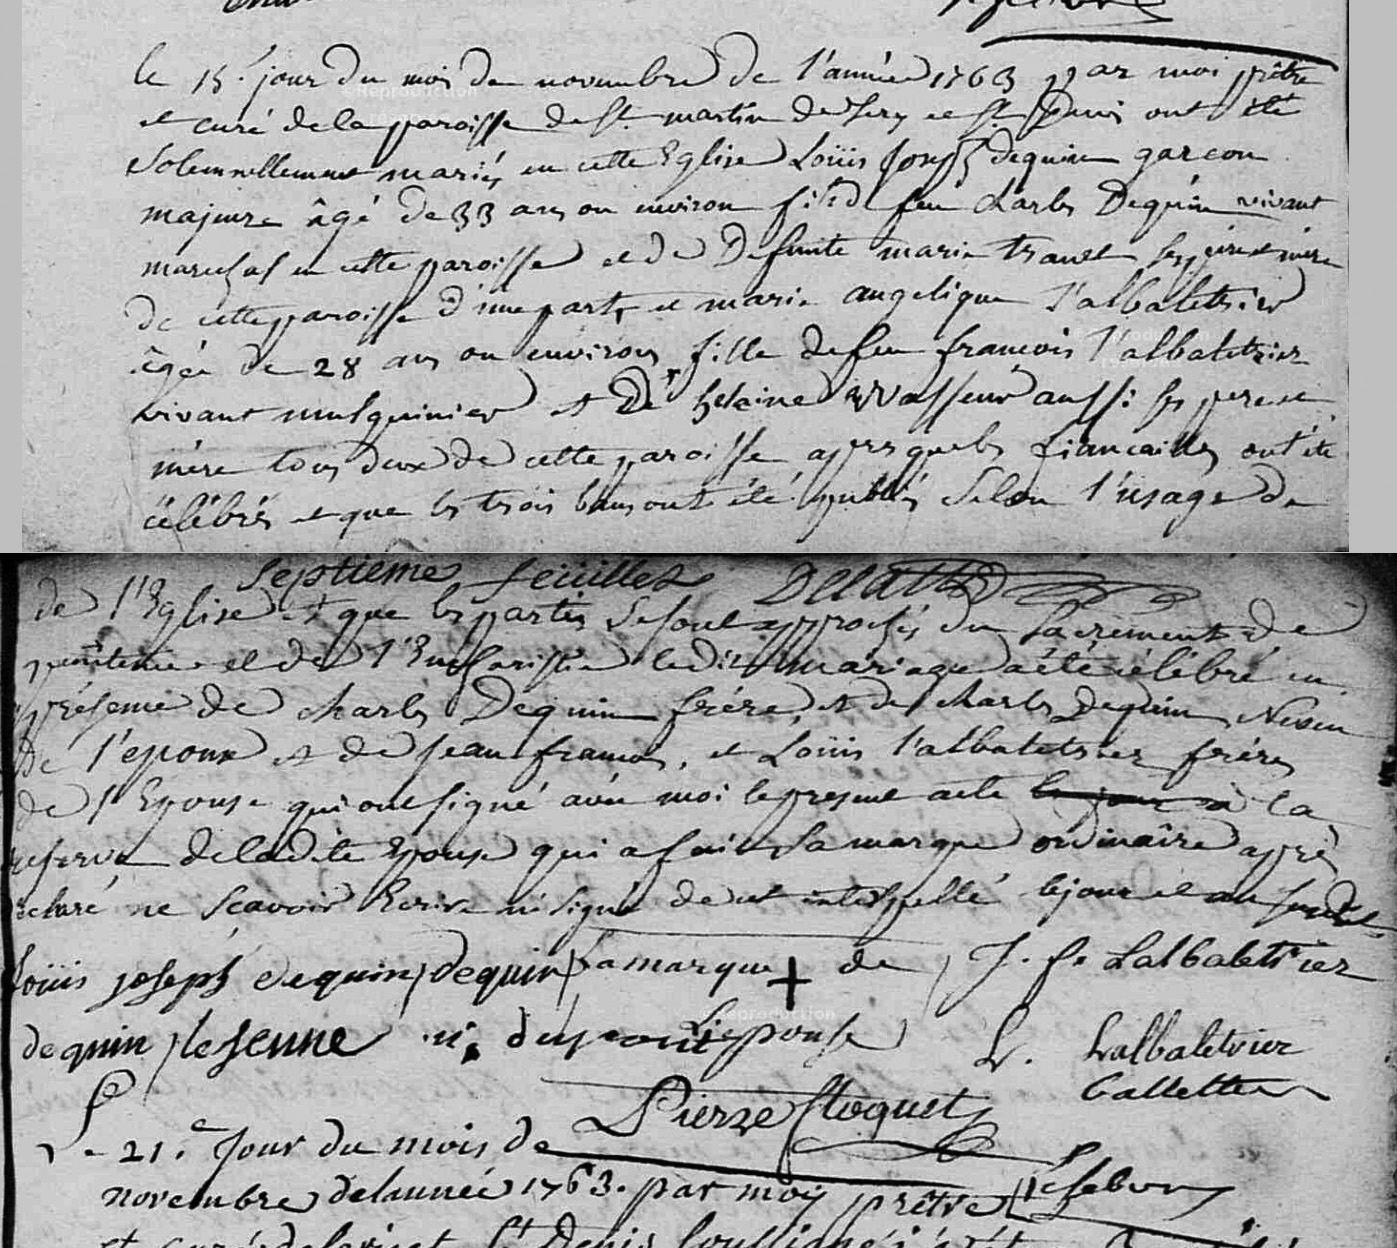 le 15.e jour du mois de novembre de l'année 1763 par moi prêtre
et curé de la paroisse de St. martin de Sery et St Denis ont été
Solemnellement mariés en cette Eglise Loüis Joseph dequin garcon
majeure âgé de 33 ans ou environ fils de feu charles Dequin vivant
marechal en cette paroisse et de Defunte marie ses pere et mere
de cette paroisse d'une part, et marie angelique l'albaletrier
âgée de 28 ans ou environ fille de feu francois l'albaletrier
vivant mulquinier et De helaine vasseur aussi ses pere et
mére tous deux de cette paroisse apres que les fiancailles ont été
célébrés et que les trois bans ont été publiés Selon l'usage de
Septieme feüillet Delatt
de l'Eglise et que les parties Se sont approchés du Sacrement de
penitence et de l'Eucharistie ledit mariage a été célébré en
présence de charles Dequin frére, et de charles Dequin Neveu
de l'epoux et de jean francois, et Loüis l'albaletrier fréres
de l'Epouse qui ont signé avec moi le present acte le jour à la
reserve de ladite Epouse qui a fait sa marque ordinaire aprés
declaré ne Scavoir Ecrire ni signé de ce interpellé le jour et an susdit
Loüis joseph dequin dequin la marque + de J. f. Lalbaletrier
dequin lejeune epouse L. Lalbaletrier
Callette
Pierre floquet
Le 21.e Jour du mois de
novembre de lannée 1763. par moy prêtre Lefebvre
et curé de St Denis